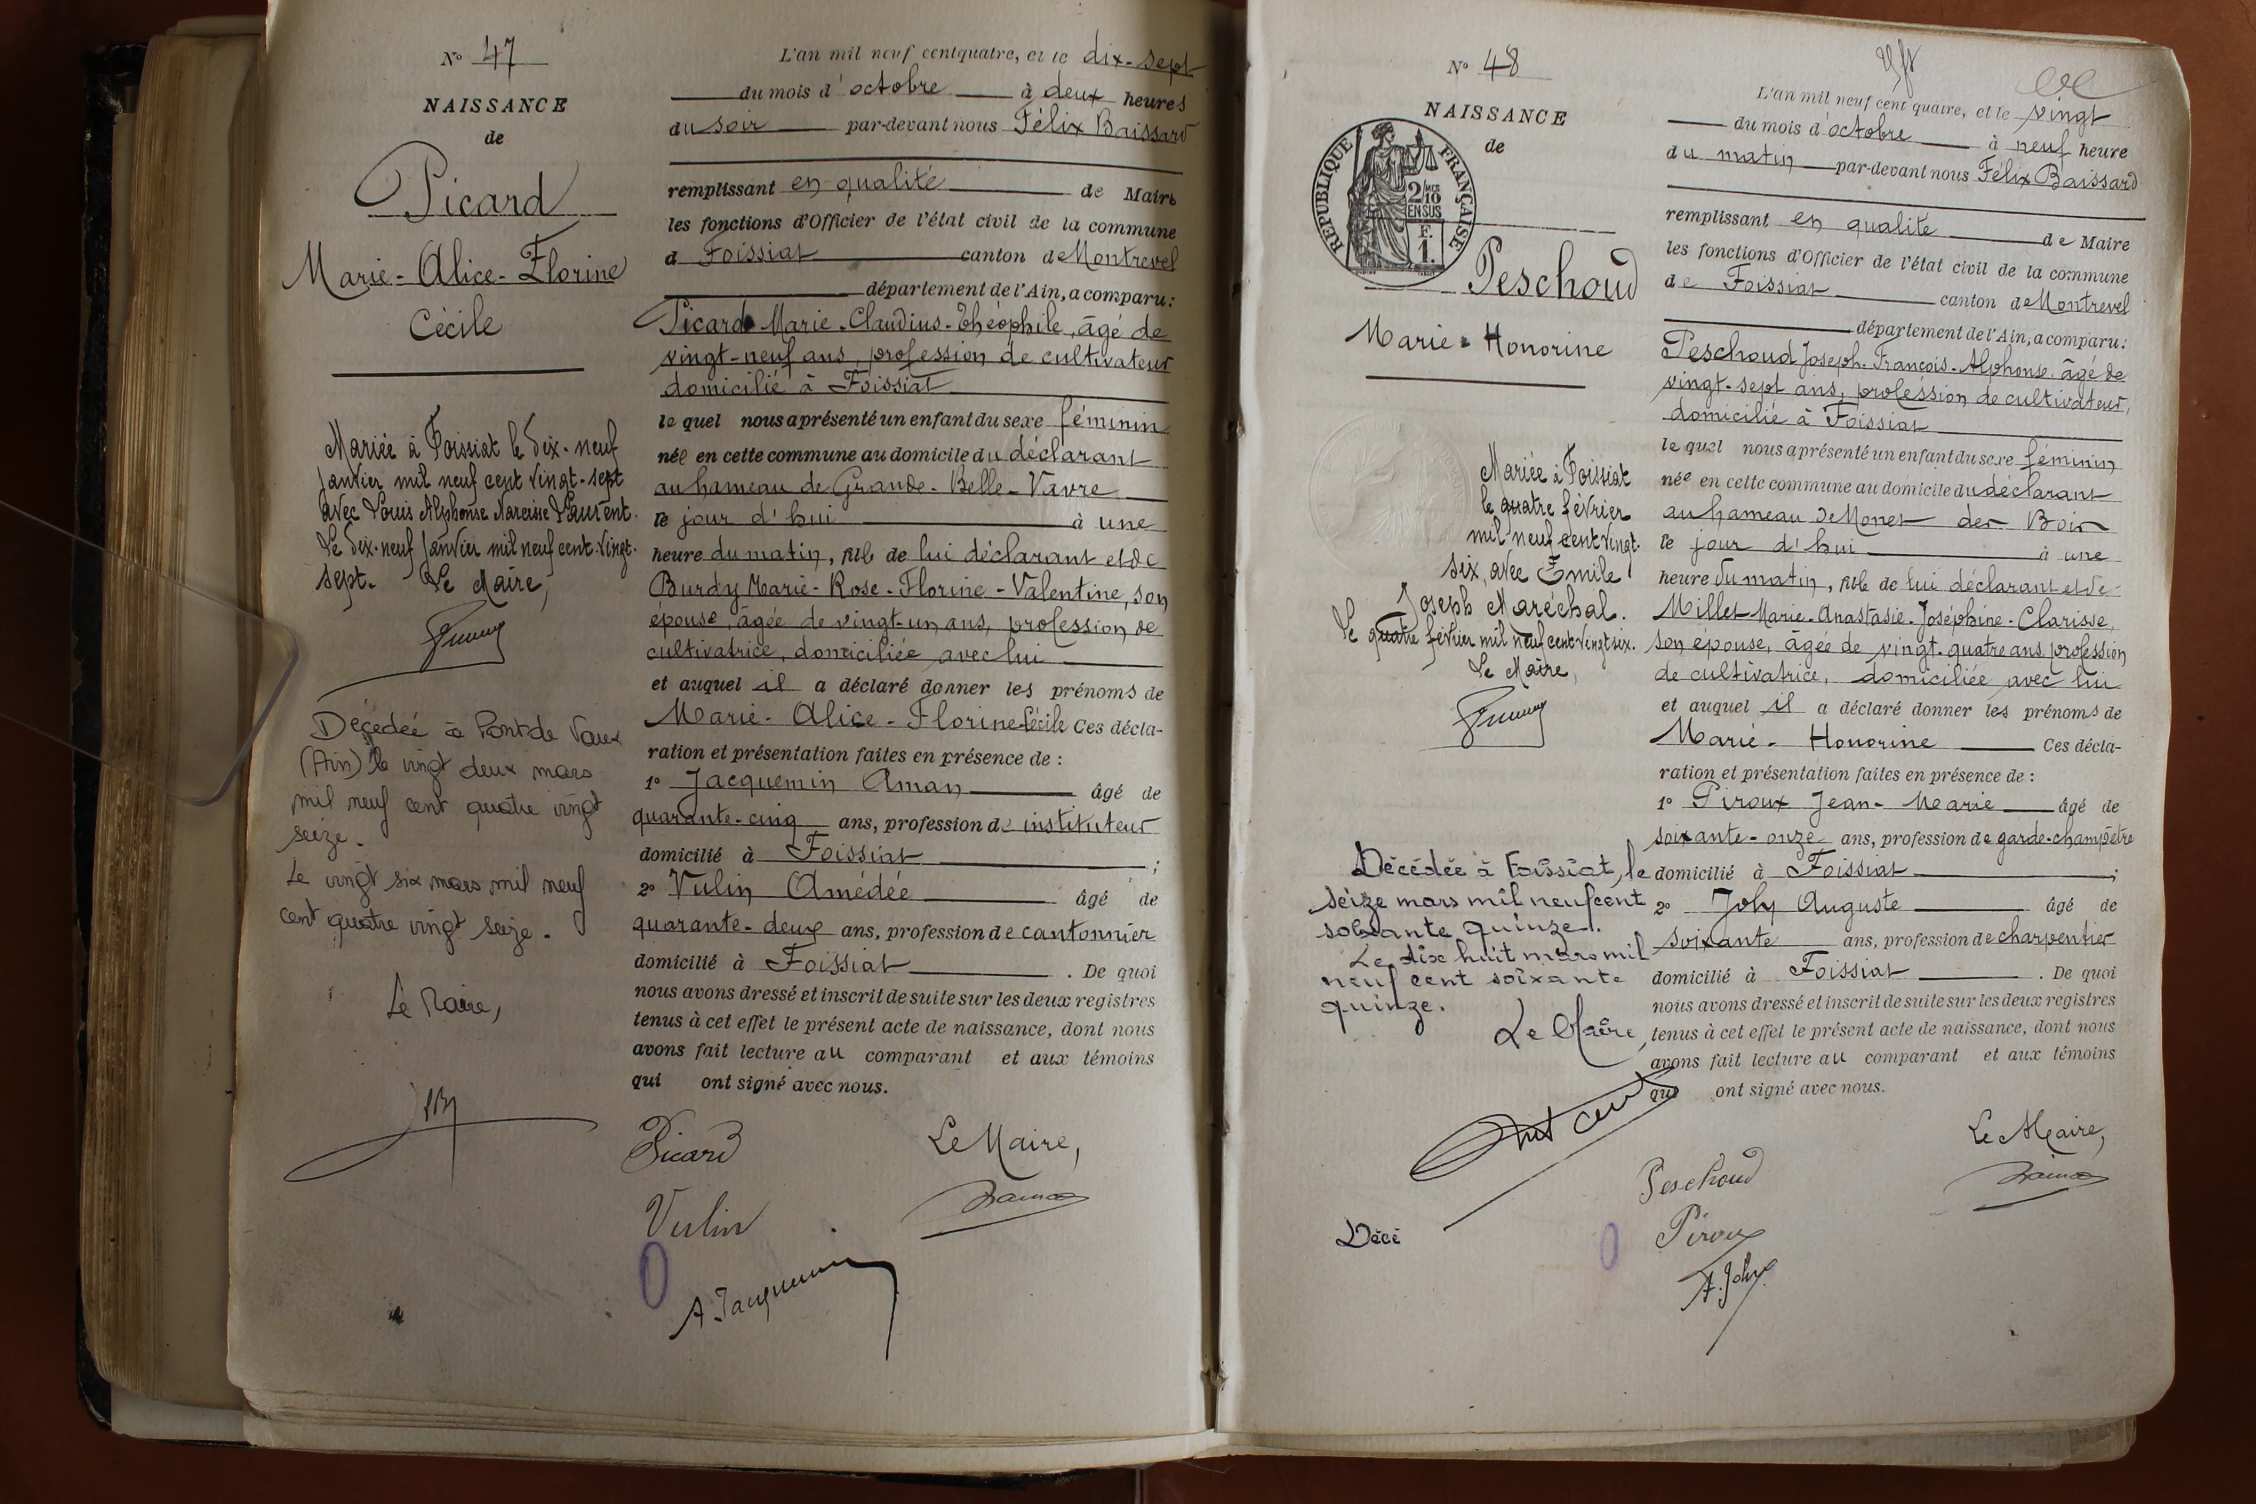 N° 47
NAISSANCE
de
Picard
Marie-Alice-Florine
Cécile
Mariée à Foissiat le dix-neuf
janvier mil neuf cent vingt-sept
avec Louis Alphonse Narcisse Laurent.
Le dix-neuf janvier mil neuf cent vingt-
sept. Le Maire,
Décédée à Pont de Vaux
(Ain) le vingt deux mars
mil neuf cent quatre vingt
seize.
Le vingt six mars mil neuf
cent quatre vingt seize.
Le Maire,
L'an mil neuf cent quatre, et le dix-sept
du mois d'octobre à deux heures
du soir par-devant nous Félix Baissard
remplissant en qualité de Maire
les fonctions d'Officier de l'état civil de la commune
d Foissiat canton de Montrevel
département de l'Ain, a comparu:
Picard Marie-Claudius-Théophile, âgé de
vingt-neuf ans, profession de cultivateur
domicilié à Foissiat
le quel nous a présenté un enfant du sexe féminin
née en cette commune au domicile du déclarant
au hameau de Grande-Belle-Vavre
le jour d'hui à une
heure du matin, fille de lui déclarant et de
Burdy Marie-Rose-Florine-Valentine, son
épouse, âgée de vingt-un ans, profession de
cultivatrice, domiciliée avec lui
et auquel il a déclaré donner les prénoms de
Marie-Alice-Florine-Cécile Ces décla-
ration et présentation faites en présence de :
1° Jacquemin Aman âgé de
quarante-cinq ans, profession de instituteur
domicilié à Foissiat ;
2° Vulin Amédée âgé de
quarante-deux ans, profession de cantonnier
domicilié à Foissiat . De quoi
nous avons dressé et inscrit de suite sur les deux registres
tenus à cet effet le présent acte de naissance, dont nous
avons fait lecture au comparant et aux témoins
qui ont signé avec nous.
Picard Le Maire,
Vulin
A. Jacquemin
N° 48
NAISSANCE
de
RÉPUBLIQUE FRANÇAISE
2/10
EN SUS
F.
1.
Peschoud
Marie-Honorine
Mariée à Foissiat
le quatre février
mil neuf cent vingt-
six, avec Emile
Joseph Maréchal.
Le quatre février mil neuf cent vingt six.
Le Maire,
Décédée à Foissiat, le
seize mars mil neuf cent
soixante quinze.
Le dix huit mars mil
neuf cent soixante
quinze.
Le Maire,
Décé
L'an mil neuf cent quatre, et le vingt
du mois d'octobre à neuf heure
du matin par-devant nous Félix Baissard
remplissant en qualité de Maire
les fonctions d'Officier de l'état civil de la commune
de Foissiat canton de Montrevel
département de l'Ain, a comparu:
Peschoud Joseph-François-Alphonse âgé de
vingt-sept ans, profession de cultivateur,
domicilié à Foissiat
le quel nous a présenté un enfant du sexe féminin
née en cette commune au domicile du déclarant
au hameau de Monet des Bois
le jour d'hui à une
heure du matin, fille de lui déclarant et de
Millet Marie-Anastasie-Joséphine-Clarisse,
son épouse, âgée de vingt-quatre ans, profession
de cultivatrice, domiciliée avec lui
et auquel il a déclaré donner les prénoms de
Marie-Honorine Ces décla-
ration et présentation faites en présence de :
1° Piroux Jean-Marie âgé de
soixante-onze ans, profession de garde-champêtre
domicilié à Foissiat ;
2° Joly Auguste âgé de
soixante ans, profession de charpentier
domicilié à Foissiat . De quoi
nous avons dressé et inscrit de suite sur les deux registres
tenus à cet effet le présent acte de naissance, dont nous
avons fait lecture au comparant et aux témoins
qui ont signé avec nous.
Le Maire,
Peschoud
Piroux
A. Joly